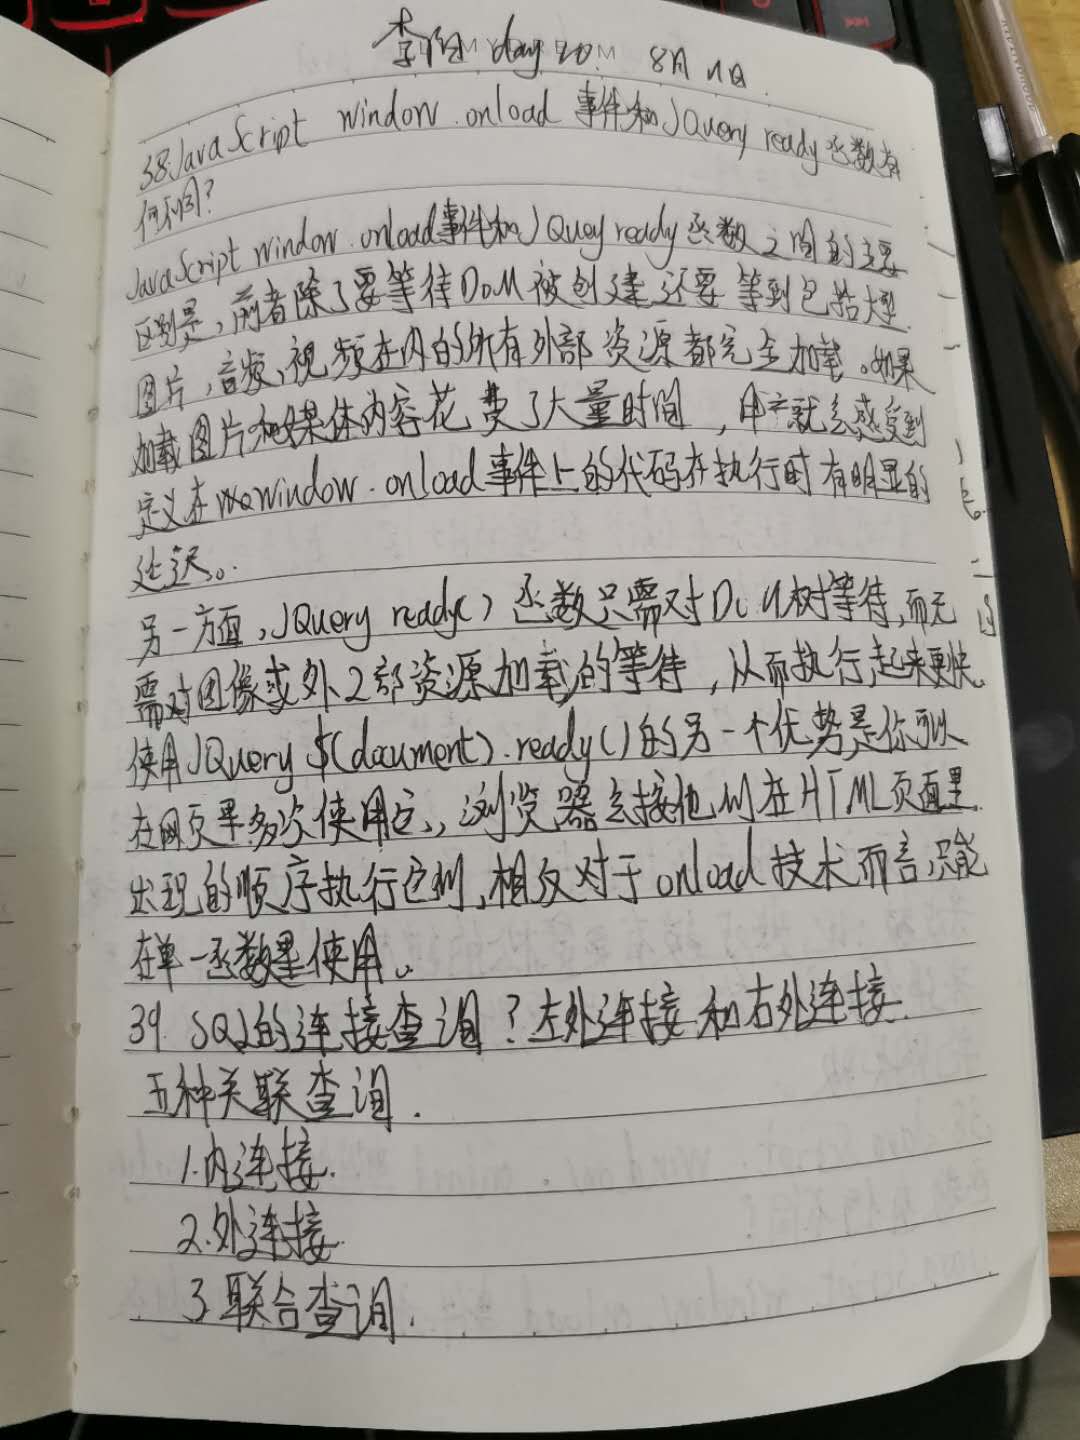 day 20 8月11日
38.JavaScript window.onload 事件和JQuery ready函数有
何不同?
JavaScript window.onload事件和JQuey ready函数之间的主要
区别是,前者除了要等待DOM被创建还要等到包括大型
图片,音频,视频在内的所有外部资源都完全加载。如果
加载图片和媒体内容花费了大量时间,用户就会感受到
定义在window.onload事件上的代码在执行时有明显的
延迟。
另一方面,JQuery ready()函数只需对DOM树等待,而无
需对图像或外部资源加载的等待,从而执行起来更快.
使用JQuery $(document).ready()的另一个优势是你可以
在网页里多次使用它,浏览器会按他们在HTML页面里
出现的顺序执行它们,相反对于onload技术而言,只能
在单一函数里使用。
39.SQL的连接查询?左外连接和右外连接.
五种关联查询.
1.内连接.
2.外连接
3.联合查询.